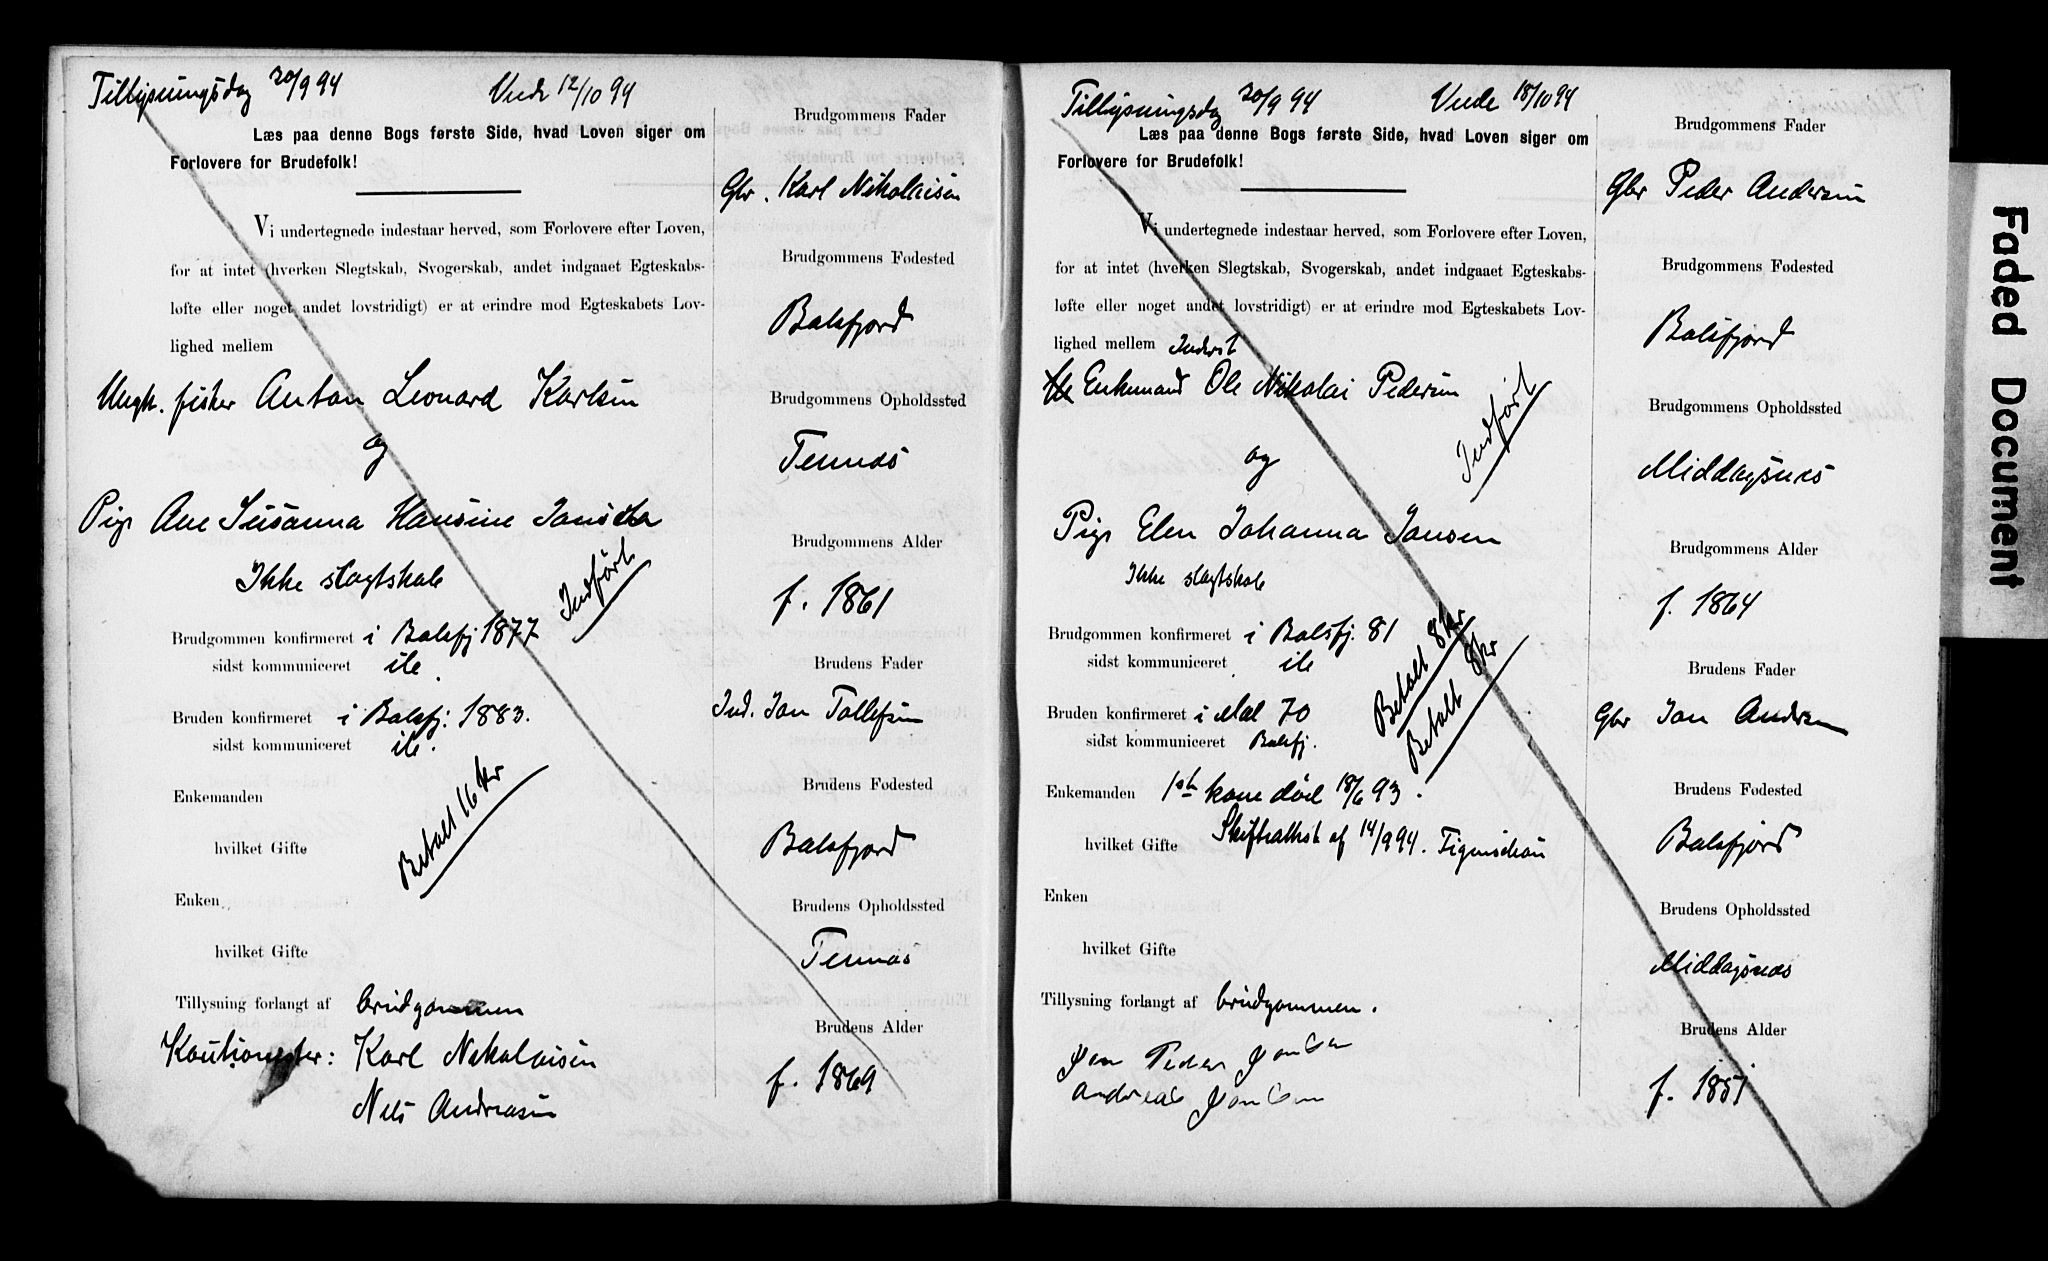 Tillysningsdag 30/9 94 Viede 12/10 94
Læs paa denne Bogs første Side, hvad Loven siger om
Forlovere for Brudefolk!
Vi undertegnede indestaar herved, som Forlovere efter Loven,
for at intet (hverken Slegtskab, Svogerskab, andet indgaaet Egteskabs-
løfte eller noget andet lovstridigt) er at erindre mod Egteskabets Lov-
lighed mellem
Ungk. fisker Anton Leonard Karlsen
og
Pige Ane Susanna Hansine
Ikke slægtskab
Indført
Brudgommen konfirmeret i Balsfj 1877
sidst kommuniceret ile
Bruden konfirmeret i Balsfj: 1883.
sidst kommuniceret ile.
Betalt 16 kr
Enkemanden
hvilket Gifte
Enken
hvilket Gifte
Tillysning forlangt af brudgommen
Kautionister: Karl Nikolaisen
Nels Andreasen
Brudgommens Fader
Gbr. Karl Nikolaisen
Brudgommens Fødested
Balsfjord
Brudgommens Opholdssted
Tennæs
Brudgommens Alder
f. 1861
Brudens Fader
Ind. Jon Tollefsen
Brudens Fødested
Balsfjord
Brudens Opholdssted
Tennæs
Brudens Alder
f. 1869
Tillysningsdag 30/9 94 Viede 18/10 94
Læs paa denne Bogs første Side, hvad Loven siger om
Forlovere for Brudefolk!
Vi undertegnede indestaar herved, som Forlovere efter Loven,
for at intet (hverken Slegtskab, Svogerskab, andet indgaaet Egteskabs-
løfte eller noget andet lovstridigt) er at erindre mod Egteskabets Lov-
lighed mellem Inderst
Enkemand Ole Nikolai Pedersen
Indført
og
Pige Elen Johanna Jonsen
Ikke slægtskab
Brudgommen konfirmeret i Balsfj. 81
sidst kommuniceret ile
Betalt 8 kr
Betalt 8 kr
Bruden konfirmeret i Mal 70
sidst kommuniceret Balsfj.
Enkemanden 1ste kone død 18/6 93.
hvilket Gifte Skifteattest af 14/9 94.
Enken
hvilket Gifte
Tillysning forlangt af brudgommen.
Jon Peder Jonsen
Andreas Jonsen
Brudgommens Fader
Gbr Peder Andersen
Brudgommens Fødested
Balsfjord
Brudgommens Opholdssted
Middagsnes
Brudgommens Alder
f. 1864
Brudens Fader
Gbr Jon Andersen
Brudens Fødested
Balsfjord
Brudens Opholdssted
Middagsnes
Brudens Alder
f. 1851
Faded Document